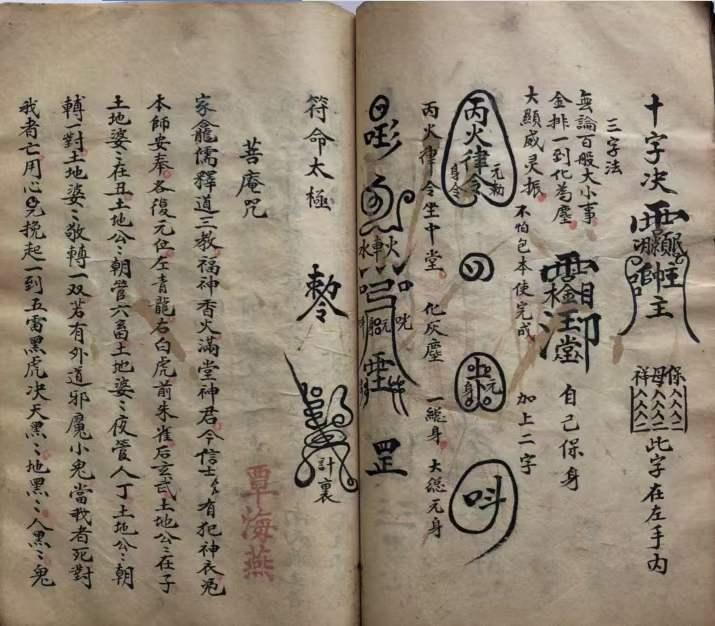 十字决
主
保母祥
此字在左手内
三字法
無論百般大小事
金排一到化為塵
大顯威灵振
不怕包本使完成
自己保身
加上二字
丙火律令
元物
身合
丙火律令坐中堂
化灰塵
一総身
大総元身
水車火
符命太極
敕令
計裏
菩庵咒
家龕儒釋道三教福神香火滿堂神君今信士
有犯神衣
本師安奉各復元位左青龍右白虎前朱雀后玄武土地公〻在子
土地婆〻在丑土地公〻朝管六畜土地婆〻夜管人丁土地公〻朝
轉一對土地婆〻敬轉一双若有外道邪魔小鬼當我者死對
我者亡用心
挽起一到五雷黑虎决天黑〻地黑〻人黑〻鬼
覃海燕